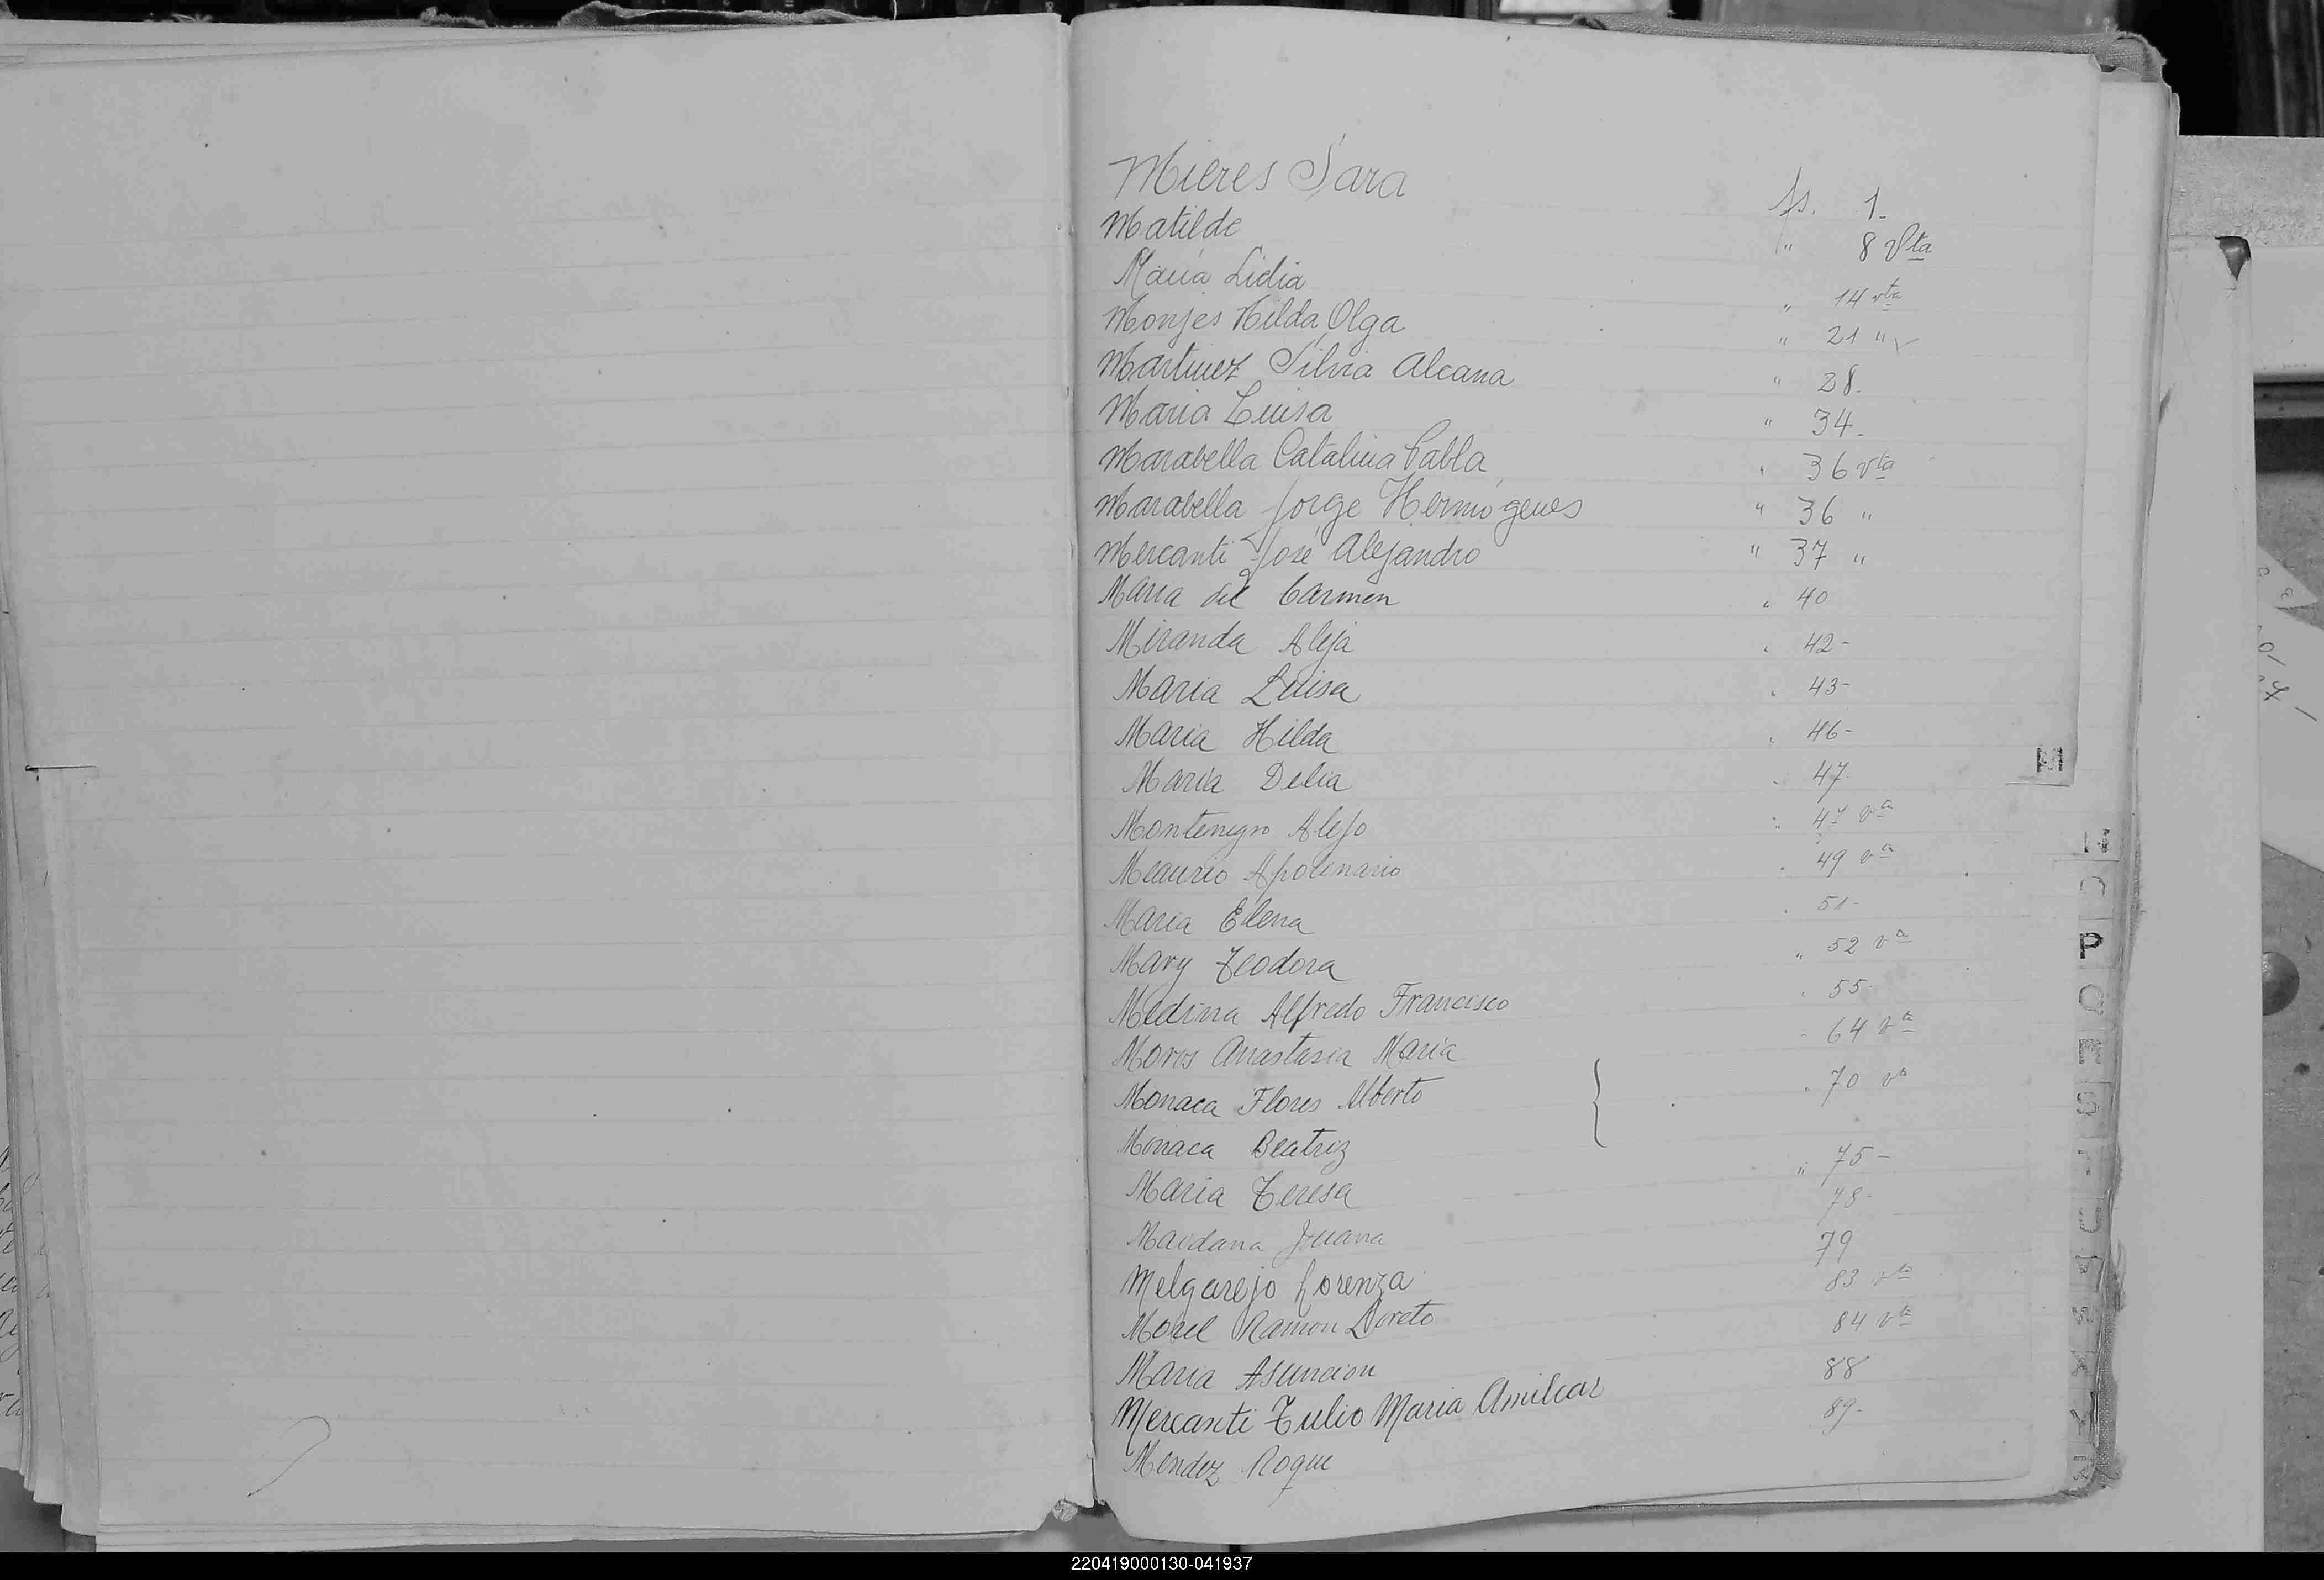 Mieres Sara fs. 1-
Matilde " 8 Vta
María Lidia " 14 vta
Monjes Hilda Olga " 21 "
Martinez Silvia Alcana " 28.
Maria Luisa " 34-
Marabella Catalina Pabla " 36 vta
Marabella Jorge Hermógenes " 36 "
Mercanti José Alejandro " 37 "
Maria del Carmen " 40
Miranda Aleja " 42-
Maria Luisa " 43-
Maria Hilda " 46-
Maria Delia 47
Montenegro Alejo " 47 va
Meaurio Apolinario 49 va
Maria Elena 51-
Mary Teodora " 52 va
Medina Alfredo Francisco 55-
Anastasia Maria 64 vta
Monaca Flores Alberto } " 70 va
Monaca Beatriz
Maria Teresa " 75-
Maidana Juana 78-
Melgarejo Lorenza 79
Morel Ramon Loreto 83 vta
Maria Asuncion 84 vta
Mercanti Tulio Maria Amilcar 88
Mendez Roque 89-
M
P
O
S
220419000130-041937